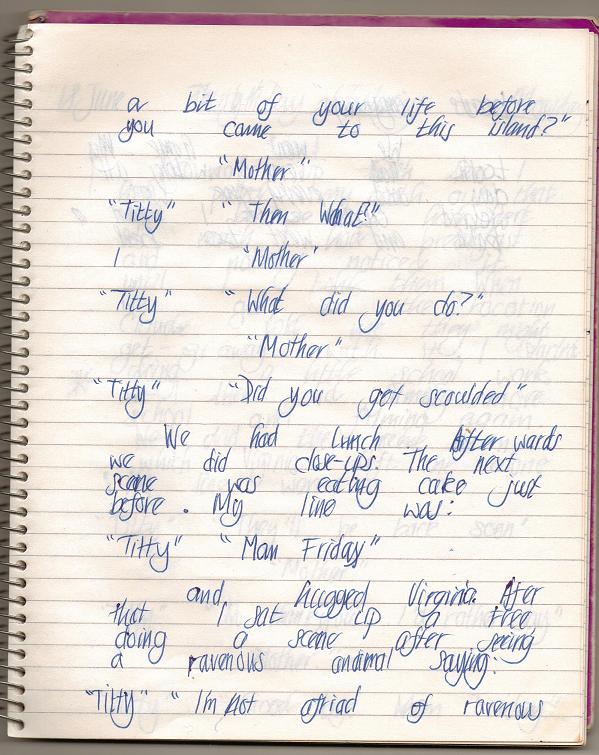 a bit of your life before
you came to this island?"
"Mother"
"Titty" "Then What?"
"Mother'
"Titty" "What did you do?"
"Mother"
"Titty" "Did you get scoulded"
We had lunch. Afterwards
we did close-ups. The next
scene was eating cake just
before. My line was:
"Titty" "Man Friday"
and hugged Virginia. After
that I sat up a tree
doing a scene after seeing
a ravenous animal saying:
"Titty" "I'm not afriad of ravenous